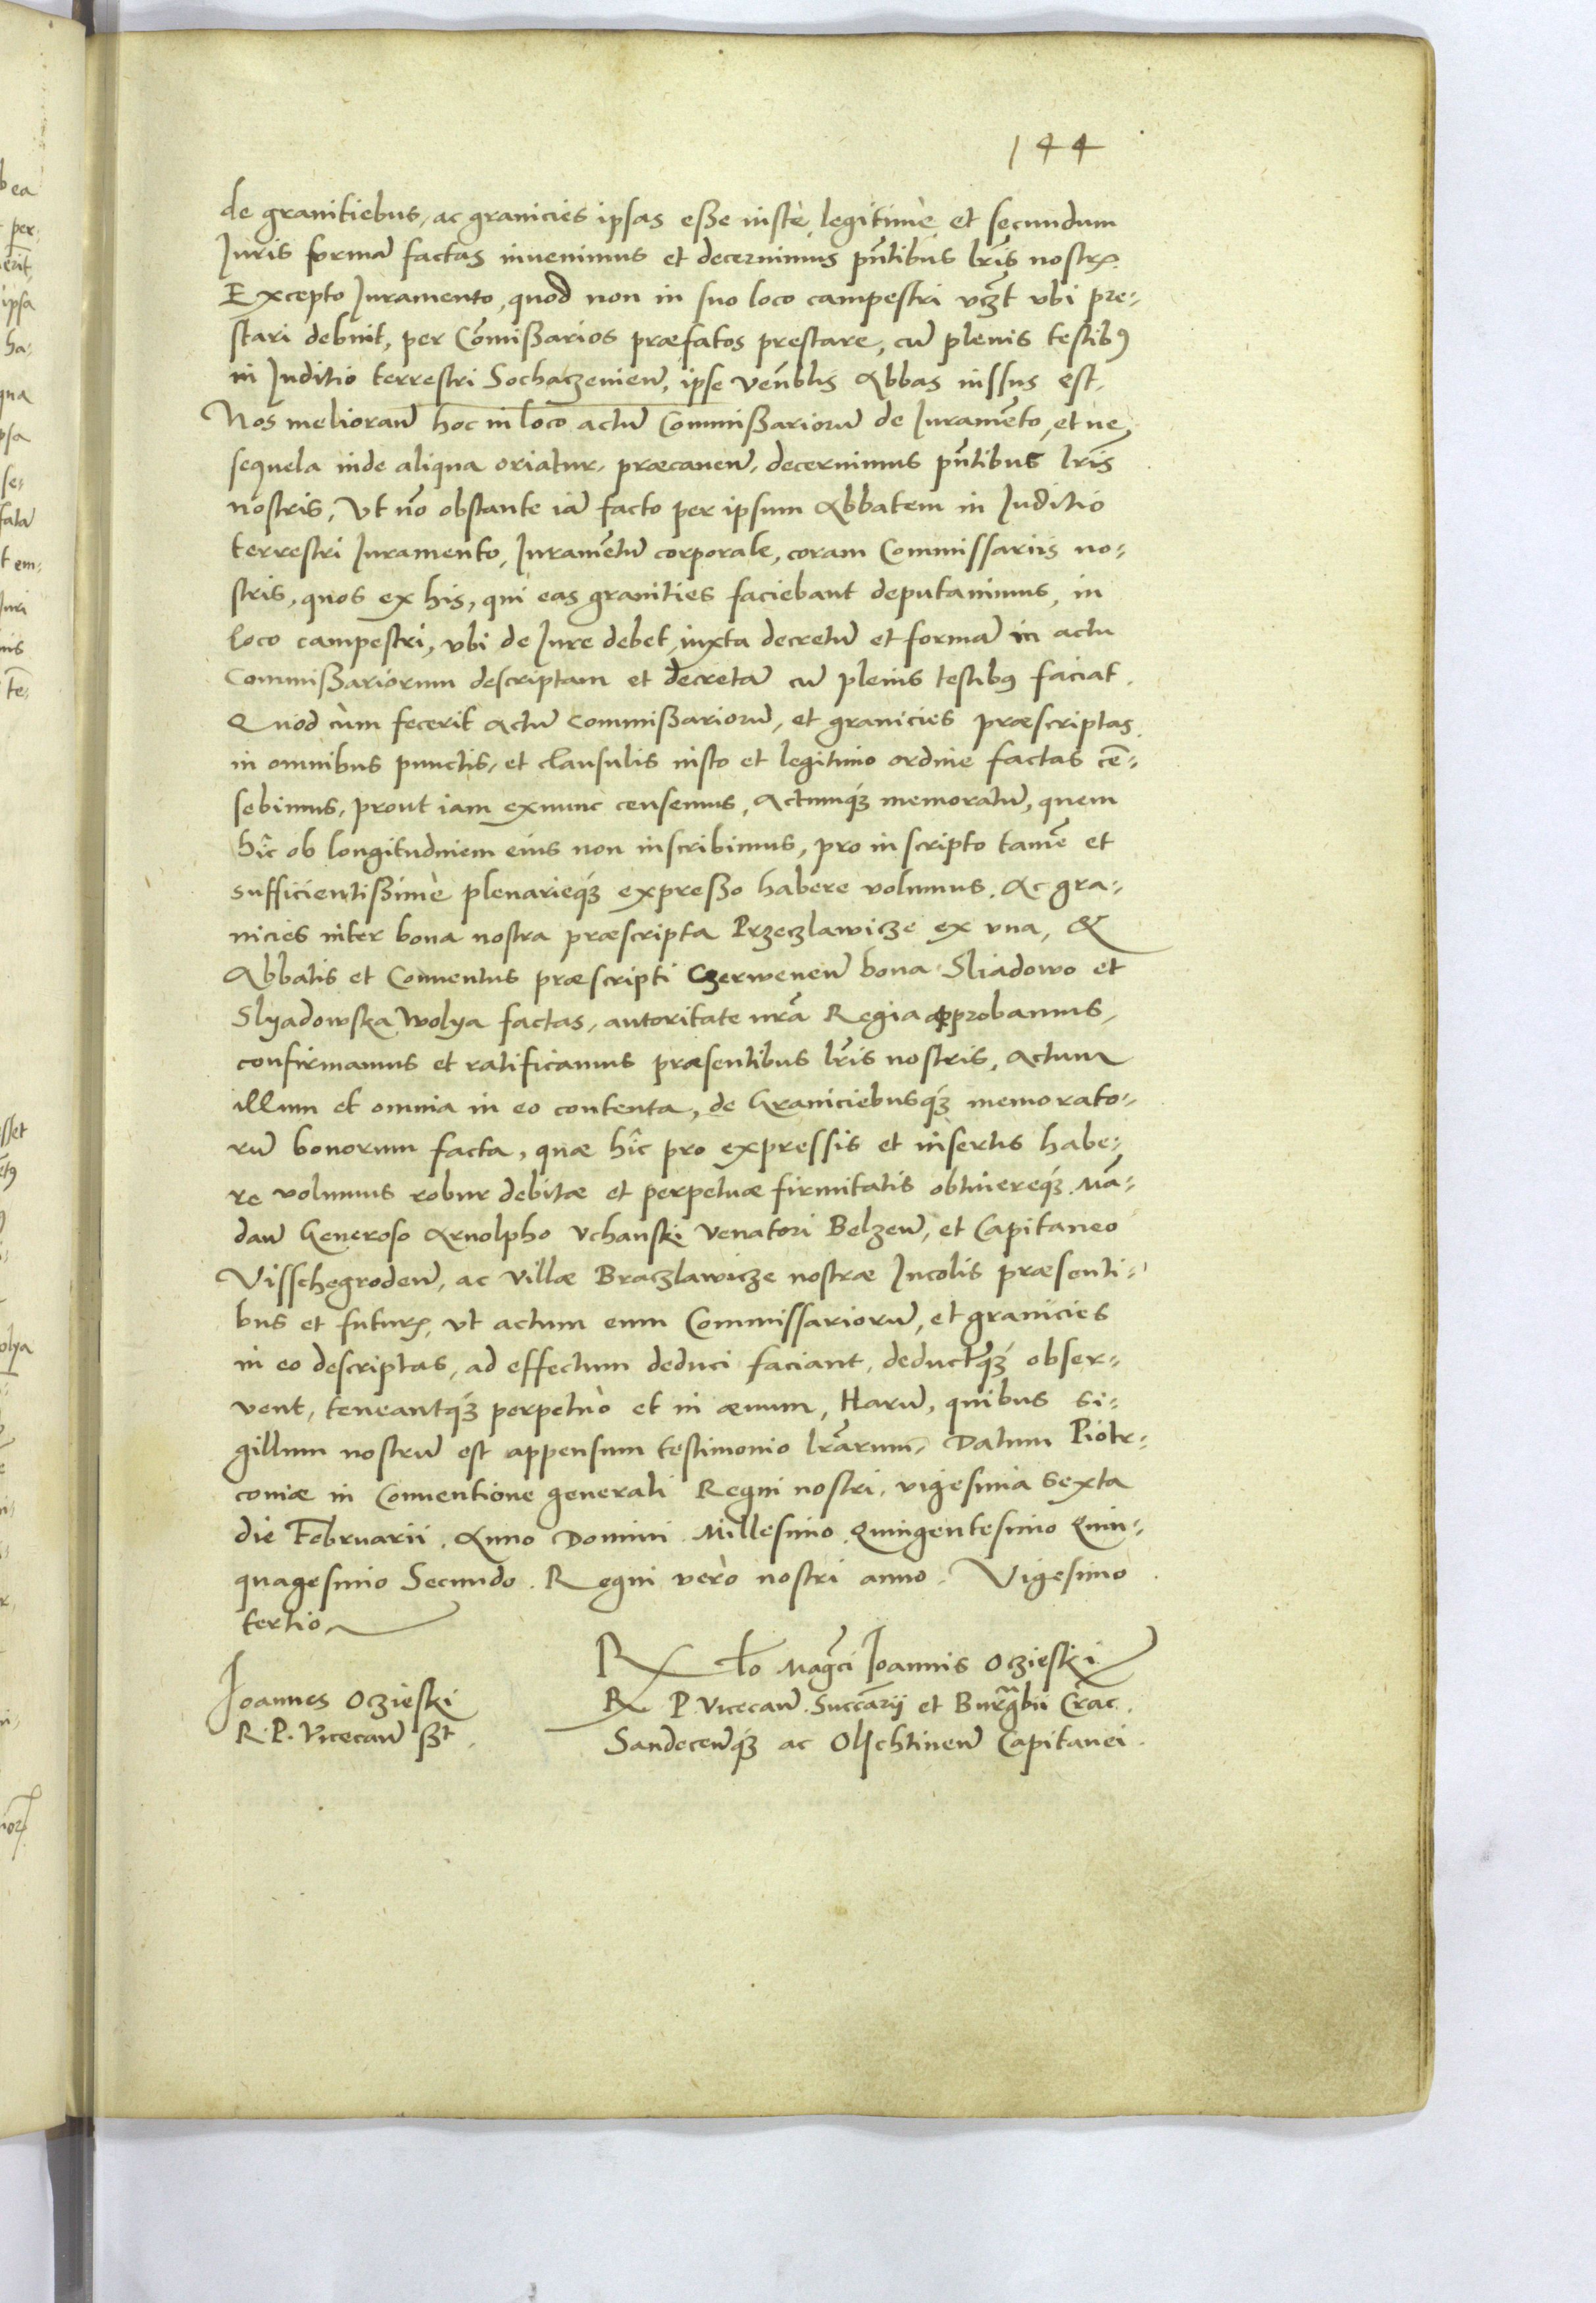 144
de granitiebus, ac granicies ipsas eße iuste, legitimè, et secundum
Iuris formã factas invenimus et decernimus pñtibus lris nostrꝝ.
Excepto Iuramento, quod non in suo loco campestri vcꝫt vbi pre-
stari debuit, per Cõmißarios præfatos prestare, cũ plenis testibꝰ
in Iuditio terrestri Sochaczenieñ, ipse veñblis Abbas iussus est.
Nos meliorañ hoc in loco actũ Commißariorũ de Iuramẽto, et ne
sequela inde aliqua oriatur, præcaueñ, decernimus pñtibus lris
nostris, Vt nõ obstante iã facto per ipsum Abbatem in Iuditio
terrestri Iuramento, Iuramẽtũ corporale, coram Commissariis no-
stris, quos ex his, qui eas granities faciebant deputauimus, in
loco campestri, vbi de Iure debet, iuxta decretũ et formã in actu
Commißariorum descriptam et decretã cũ plenis testibꝰ faciat.
Quod cùm fecerit Actũ Commißariorũ, et granicies præscriptas
in omnibus punctis, et clausulis iusto et legitimo ordine factas cẽ-
sebimus, prout iam exnunc censemus, Actumqꝫ memoratũ, quem
hîc ob longitudinem eius non inscribimus, pro inscripto tamẽ et
sufficientißimè plenarieqꝫ expreßo habere volumus. Ac gra-
nicies inter bona nostra præscripta Przeczlawicze ex vna, &
Abbatis et Conuentus præscripti Czerweneñ bona Sliadowo et
Slyadowska Wolya factas, autoritate nrã Regia approbamus,
confirmamus et ratificamus præsentibus lris nostris, Actum
illum et omnia in eo contenta, de Graniciebusqꝫ memorato-
rũ bonorum facta, quæ hîc pro expressis et insertis habe-
re volumus robur debitæ et perpetuæ firmitatis obtinereqꝫ. Mã-
dañ Generoso Arnolpho Vchanski Venatori Belzeñ, et Capitaneo
Visschegrodeñ, ac villæ Braczlawicze nostræ Incolis præsenti-
bus et futurꝝ, vt actum eum Commissariorũ, et granicies
in eo descriptas, ad effectum deduci faciant, deductqꝫ obser-
vent, teneantqꝫ perpetuò et in æuum, Harũ, quibus si-
gillum nostrũ est appensum testimonio lrãrum. Datum Piotr-
coniæ in Conuentione generali Regni nostri, vigesima sexta
die Februarii. Anno Domini Millesimo Quingentesimo Quin-
quagesimo Secundo. Regni verò nostri anno Vigesimo
tertio
Ioannes Oczieski
R. P. Vicecañ ßt.
Rło Magci Ioannis Oczieski
R P. Vicecañ. Succãrij et Burgrabii Crac.
Sandeceñqꝫ ac Olschtineñ Capitanei.